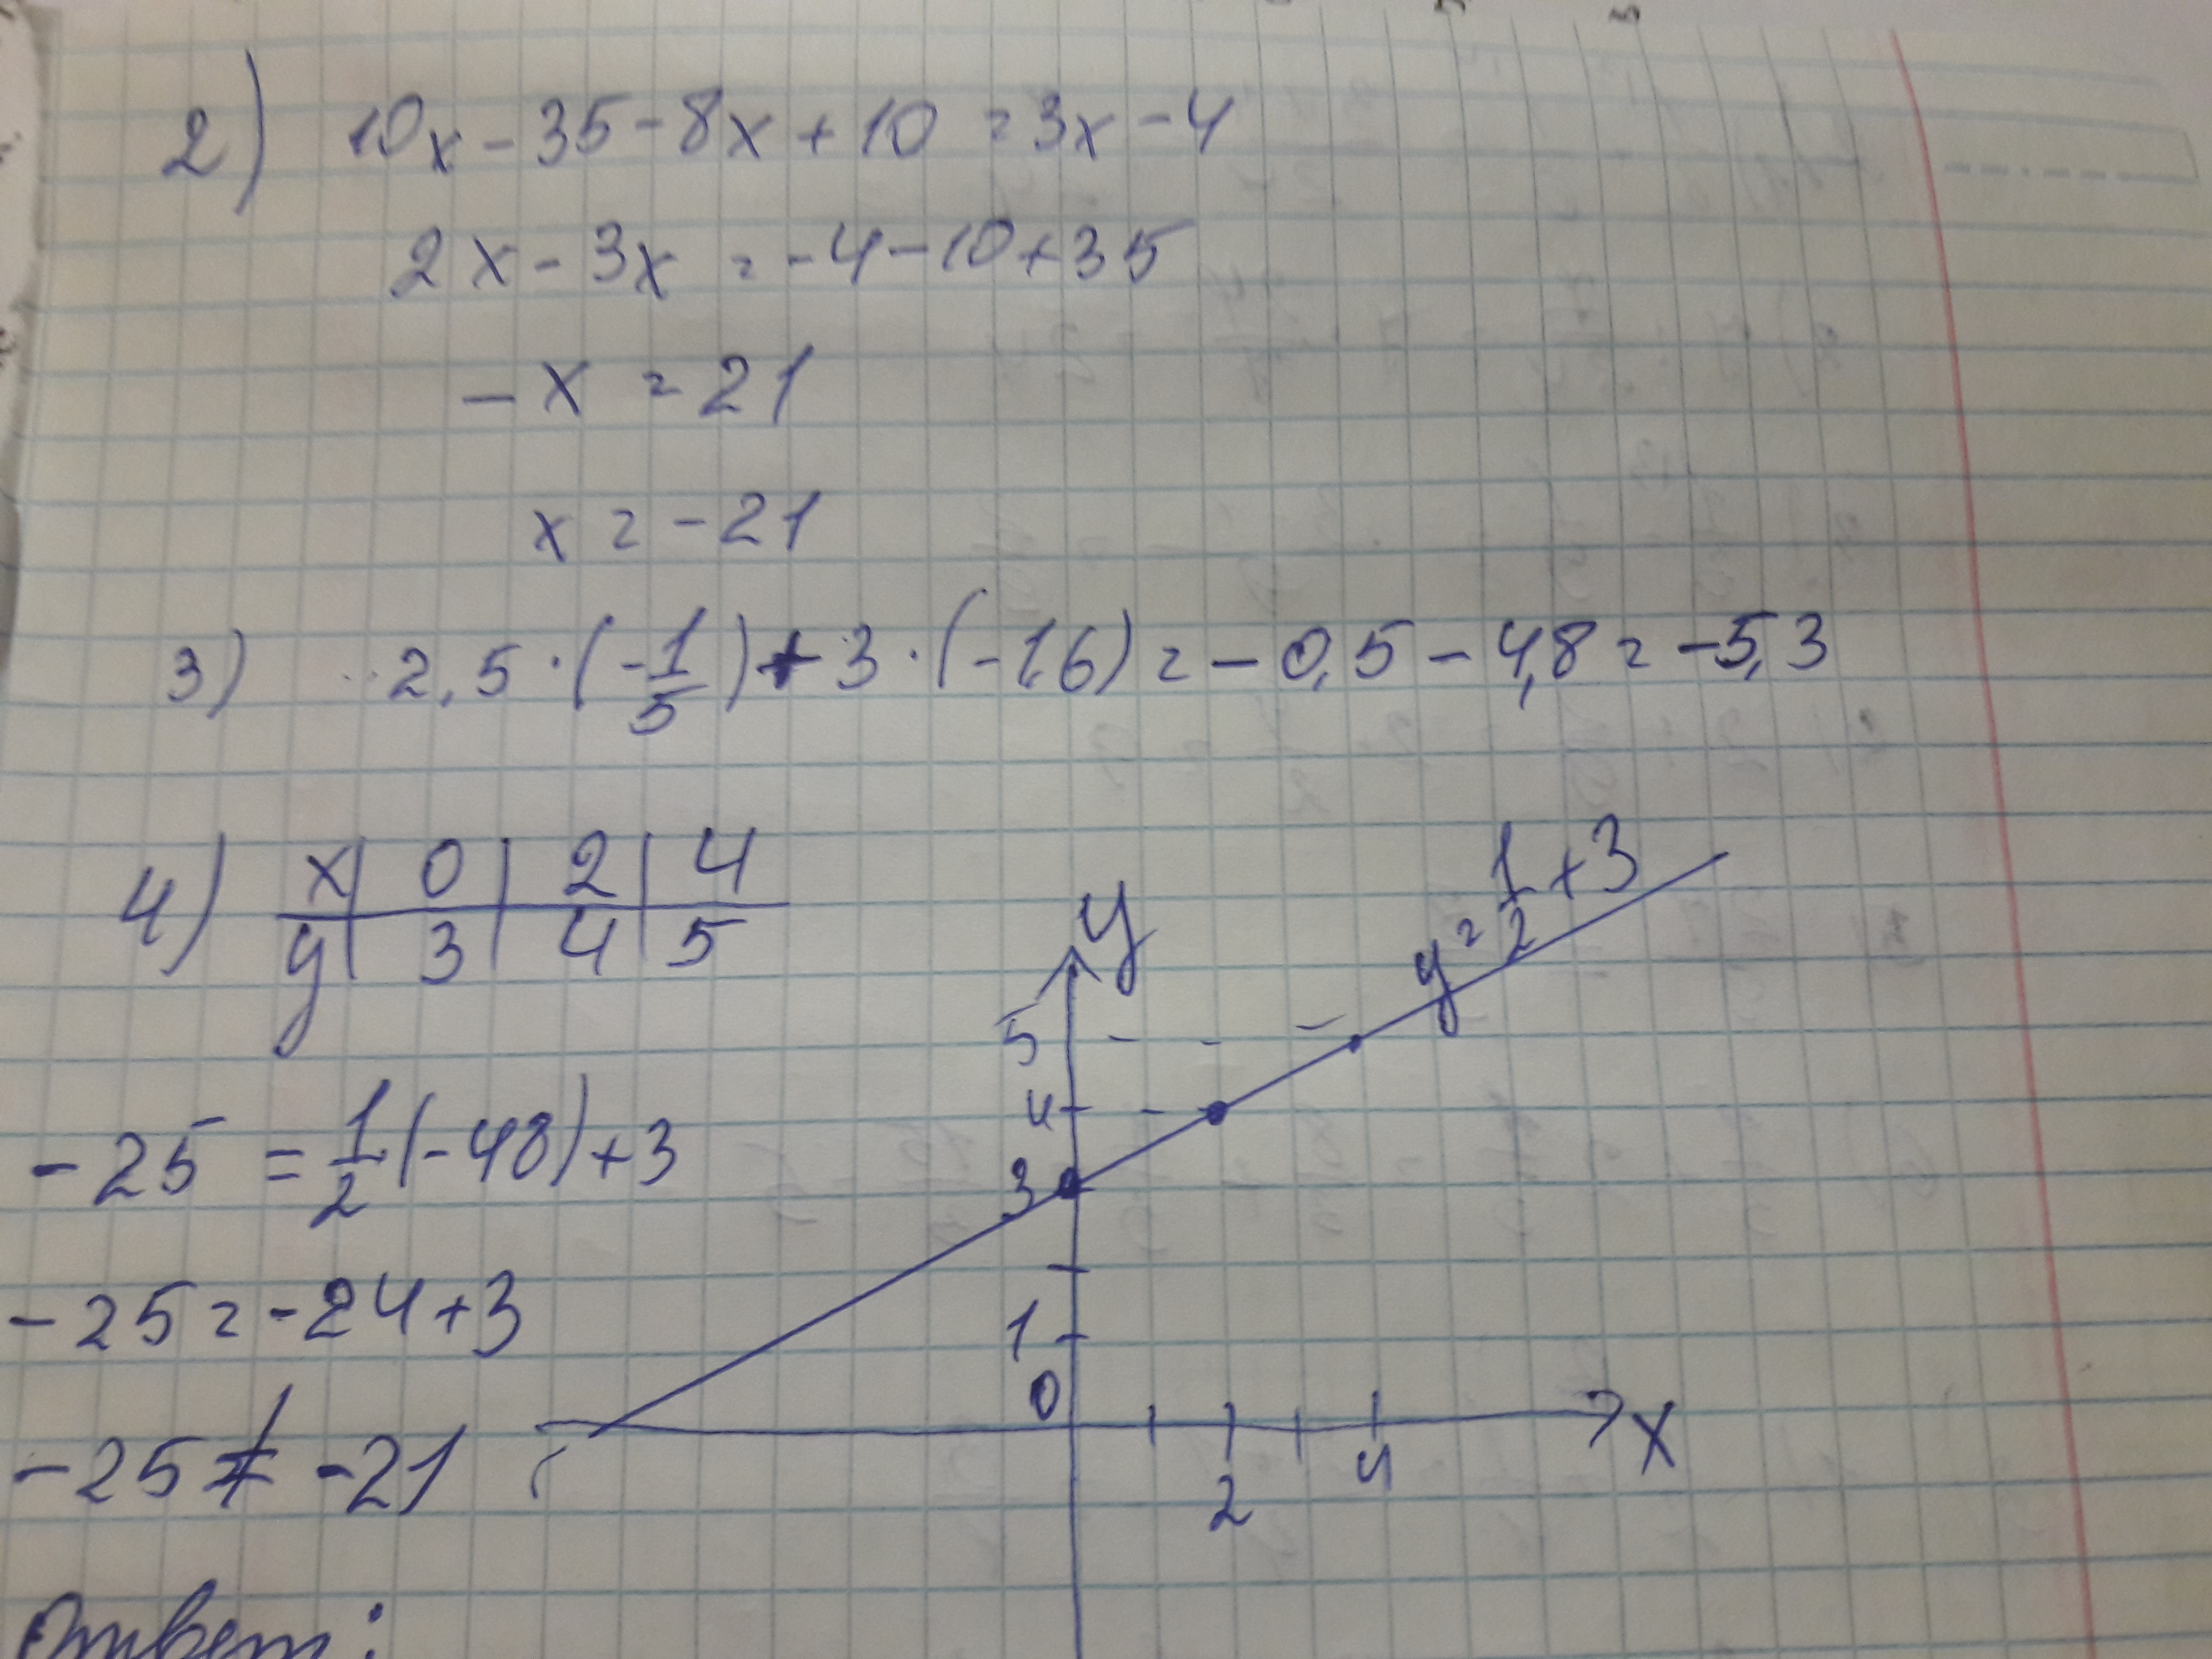 2) 10x - 35 - 8x + 10 = 3x - 4
2x - 3x = -4 - 10 + 35
- x = 21
x = -21
3) 2,5 · (-1/5) + 3 · (-1,6) = - 0,5 - 4,8 = -5,3
4) x | 0 | 2 | 4
y | 3 | 4 | 5
y = 1/2 + 3
y
5
4
3
1
0
2
4
x
-25 = 1/2 (-48) + 3
-25 = -24 + 3
-25 ≠ -21
Ответ: